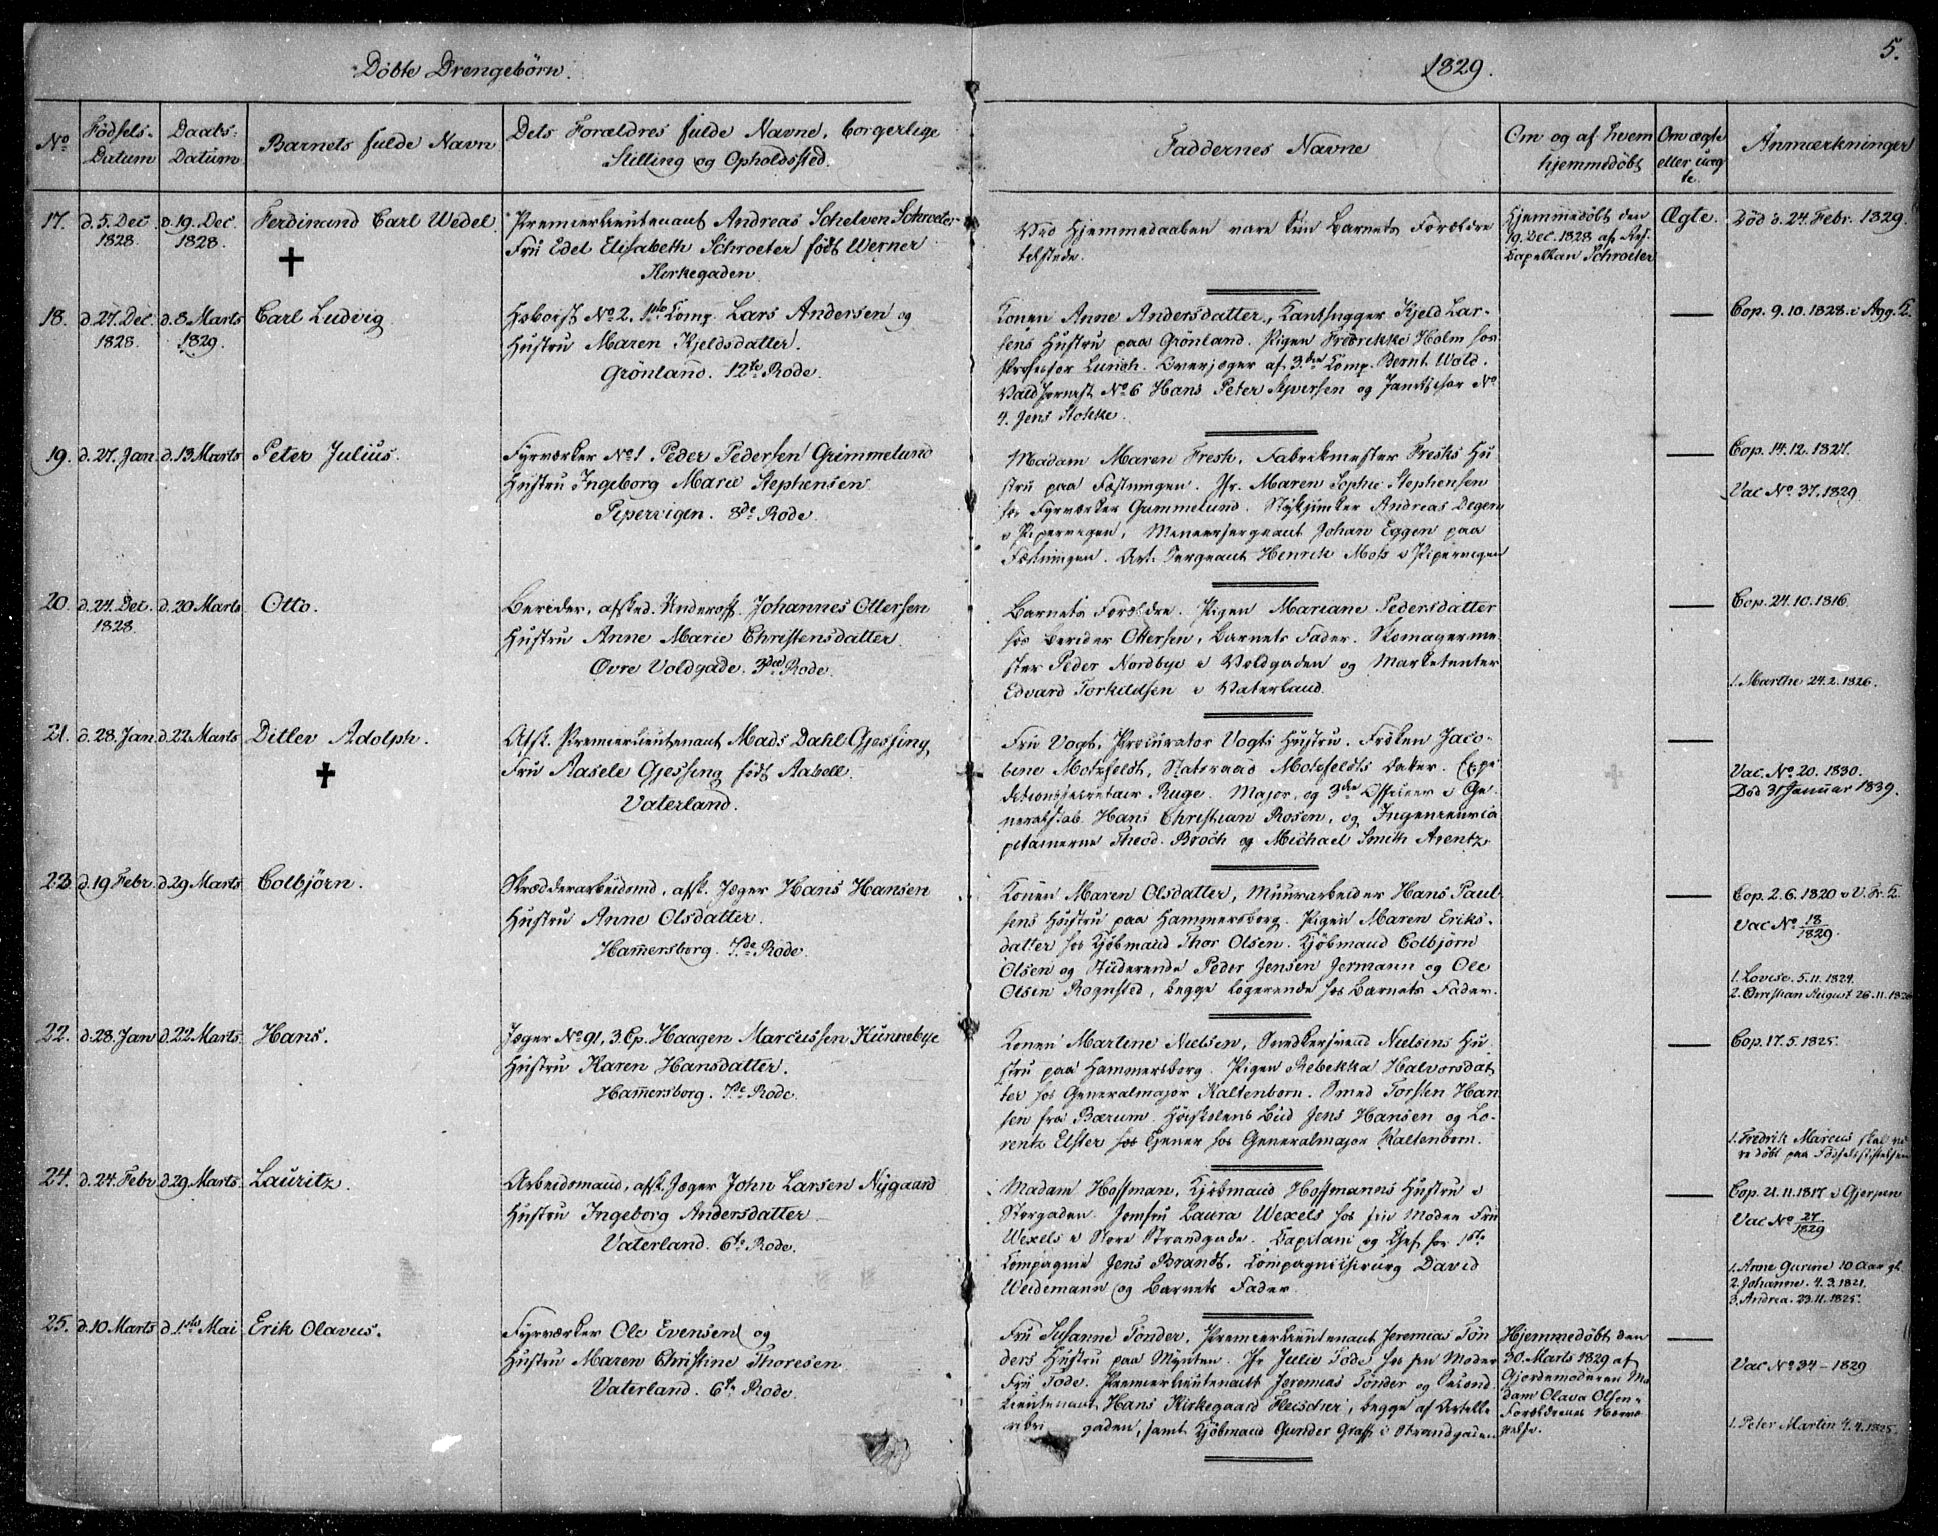 Døbte Drengebørn.
1829.
5.
No
Fødsels-
Datum
Daabs-
Datum
Barnets fulde Navn
Dets Forældres fulde Navne, borgerlige
Stilling og Opholdssted.
Faddernes Navne
Om og af hvem
hjemmedøbt
Om ægte
eller uæg
te.
Anmærkninger
17. d. 5. Dec. 1828 d. 19. Dec. 1828. Ferdinand Carl Wedel.
Premierlieutenant Andreas Schelven Schroeter
Fru Edel Elisabeth Schroeter født Werner
Kirkegaden.
Ved Hjemmedaaben vare kun Barnets Forældre
tilstede.
Hjemmedøbt den
19. Dec. 1828 af Res.
Capellan Schroeter
Ægte.
Død d. 24. Febr. 1829.
18. d. 27. Dec. 1828. d. 8 Marts 1829. Carl Ludvig
Hoboist No 2. 1ste Comp. Lars Andersen og
Hustru Maren Kjeldsdatter.
Grönland. 12te Rode.
Konen Anne Andersdatter, Kjeld Lar-
sens Hustru paa Grönland. Pigen Fredrikke Holm hos
Professor Lundh. Overjæger af 3die Comp. Bernt Wold.
Valdhornist No 6 Hans Peter Syversen og No
4. Jens Stokke.
Cop. 9.10.1828. i Agg. K.
19. d. 27. Jan d. 13 Marts Peter Julius.
Fyrværker No 1. Peder Pedersen Grimmelund
Hustru Ingeborg Marie Stephensen
Pipervigen. 8de Rode.
Madam Maren Fresk, Fabrikmester Fresks Hu
stru paa Fæstningen. Jfr. Maren Sophie Stephensen
hos Fyrværker Grimmelund. Stykjunker Andreas Degen
i Pipervigen, Sergeant Johan Eggen paa
Fæstningen. Art. Sergeant Henrik Moss i Pipervigen
Cop. 14.12.1827.
Vac No. 37. 1829
20. d. 24. Dec. 1828 d. 20 Marts Otto.
Berider, afsked. Underoff. Johannes Ottersen
Hustru Anne Marie Christensdatter.
Øvre Voldgade. 3die Rode.
Barnets Forældre. Pigen Mariane Pedersdatter
hos Berider Ottersen, Barnets Fader. Skomagerme-
ster Peder Nordbye i Voldgaden og Marketenter
Edvard Torkildsen i Vaterland.
Cop. 24.10.1816.
1. Marthe 24.2.1826.
21. d. 28. Jan d. 22 Marts Ditlev Adolph.
Afsk. Premierlieutenant Mads Dahl Gjessing,
Fru Aasele Gjessing født Aabell.
Vaterland.
Fru Vogt, Procurator Vogts Hustru. Frøken Jaco-
bine Motzfeldt, Statsraad Motzfeldts Datter. Expe
ditionssecretair Ruge. Major, og 3die Officier i Ge
neralstab. Hans Christian Rosen, og Ingenieurca
pitainerne Theod. Broch og Michael Smith Arentz
Vac. No. 20. 1830.
Død 31 Januar 1839.
23 d. 19 Febr. d. 29 Marts Colbjörn.
Skrædderarbeidsmd, afsk. Jæger Hans Hansen
Hustru Anne Olsdatter.
Hammersborg. 7de Rode.
Konen Maren Olsdatter, Muurarbeider Hans Paul
sens Hustru paa Hammersborg. Pigen Maren Eriks-
datter hos Kjöbmand Thor Olsen. Kjöbmand Colbjörn
Olsen og Studerende Peder Jensen Jermann og Ole
Olsen Rognsted, begge logerende hos Barnets Fader.
Cop. 2.6.1820 i V. Fr. K.
Vac No 18/1829.
1. Lovise. 5.11.1824.
2. Christian August 26.11.1826
22. d. 28. Jan d. 22 Marts. Hans.
Jæger No 91, 3. Cp. Haagen Marcussen Hunnebye
Hustru Karen Hansdatter.
Hammersborg. 7de Rode.
Konen Martine Nielsen, Snedkersvend Nielsens Hu
stru paa Hammersborg. Pigen Rebekka Halvorsdat
ter hos Generalmajor Kaltenborn. Smed Torsten Han
sen fra Bærum. Høiskolens Bud Jens Hansen og Lo-
rentz Elster hos Generalmajor Kaltenborn.
Cop. 17.5.1825.
1. Fredrik Marcus skal væ
re døbt paa Fødselsstiftelsen
24. d. 24. Febr d. 29. Marts. Lauritz.
Arbeidsmand, afsk. Jæger John Larsen Nygaard
Hustru Ingeborg Andersdatter
Vaterland. 6te Rode.
Madam Hoffman, Kjöbmand Hoffmanns Hustru i
Storgaden. Jomfru Laura Wexels hos sin Moder Fru
Wexels i Store Strandgade. Capitain og Chef for 1ste
Compagnie Jens Brandt, Compagniechirurg David
Weidemann og Barnets Fader.
Cop. 21.11.1817. i Gjerpen
Vac No 27/1829
1. Anne Gurine 10 Aar gl.
2. Johanne. 4.3.1821.
3. Andrea. 23.11.1825.
25. d. 10 Marts d. 1ste Mai Erik Olavus.
Fyrværker Ole Evensen og
Hustru Maren Christine Thoresen
Vaterland. 6te Rode.
Fru Susanne Tönder, Premierlieutenant Jeremias Tön
ders Hustru paa Mynten. Jfr Julie Tode hos sin Moder
Fru Tode. Premierlieutenant Jeremias Tönder og Second
lieutenant Hans Kirkegaard Fleischer, begge af Artille
ribri gaden, samt Kjöbmand Gunder Graff i Strandgaden
Hjemmedøbt den
30. Marts 1829 af
Gjordemoderen Ma
dam Olava Olsen
Forældrenes Nærvæ
relse.
Vac No 34 - 1829
1. Peter Martin 4.4.1825.